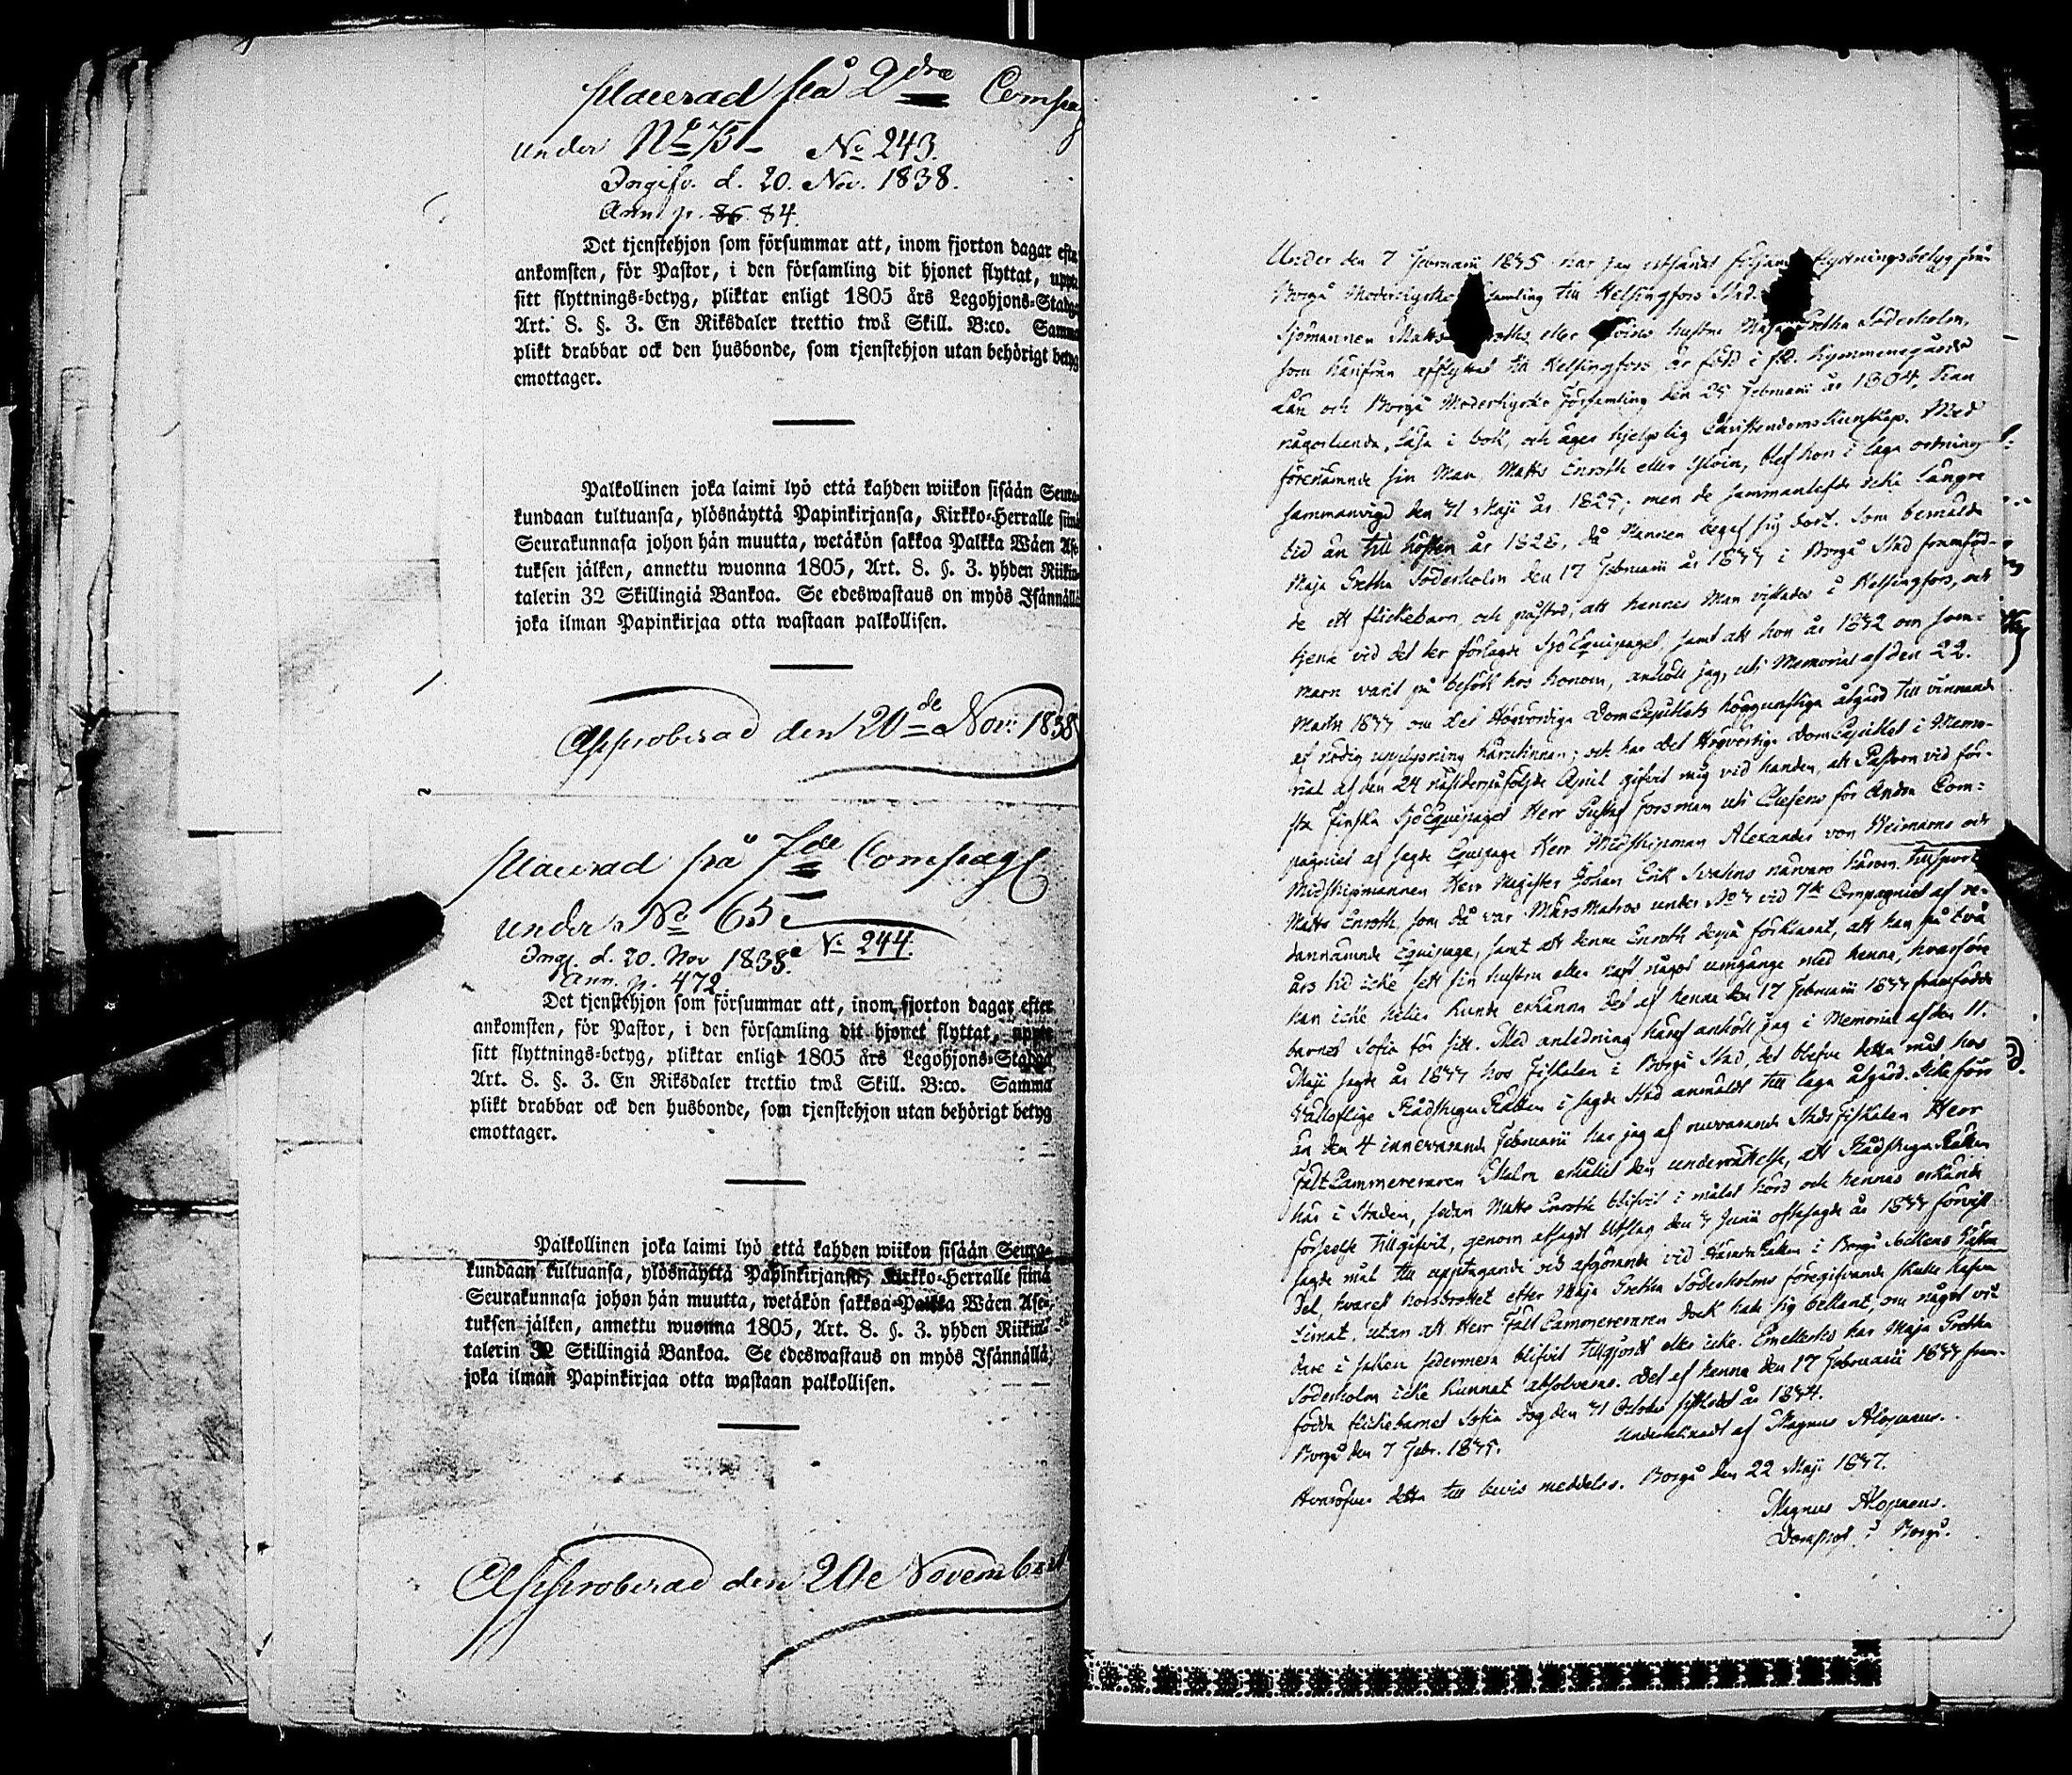 placerad på 2dra Compag
under No 75 No 243.
Ingifv. d. 20. Nov. 1838.
Ann p. 86. 84.
Det tjenstehjon som försummar att, inom fjorton dagar efter
ankomsten, för Pastor, i den församling dit hjonet flyttat, uppte
sitt flyttnings-betyg, pliktar enligt 1805 års Legohjons-Stadga
Art. 8. §. 3. En Riksdaler trettio twå Skill. B:co. Samma
plikt drabbar ock den husbonde, som tjenstehjon utan behörigt betyg
emottager.
Palkollinen joka laimi lyö että kahden wiikon sisään Seura-
kundaan tultuansa, ylösnäyttä Papinkirjansa, Kirkko-Herralle siinä
Seurakunnasa johon hän muutta, wetäkön sakkoa Palkka Wäen Ase-
tuksen jälken, annettu wuonna 1805, Art. 8. §. 3. yhden Riikin-
talerin 32 Skillingiä Bankoa. Se edeswastaus on myös Isännällä
joka ilman Papinkirjaa otta wastaan palkollisen.
Approberad den 20de Nov: 1838
placerad på 7de Compagt
under No 65
Ingf. d. 20. Nov 1838. No 244.
Ann. p. 472.
Det tjenstehjon som försummar att, inom fjorton dagar efter
ankomsten, för Pastor, i den församling dit hjonet flyttat, uppte
sitt flyttnings-betyg, pliktar enligt 1805 års Legohjons-Stadga
Art. 8. §. 3. En Riksdaler trettio twå Skill. B:co. Samma
plikt drabbar ock den husbonde, som tjenstehjon utan behörigt betyg
emottager.
Palkollinen joka laimi lyö että kahden wiikon sisään Seura-
kundaan tultuansa, ylösnäyttä Papinkirjansa, Kirkko-Herralle siinä
Seurakunnasa johon hän muutta, wetäkön sakkoa Palkka Wäen Ase-
tuksen jälken, annettu wuonna 1805, Art. 8. §. 3. yhden Riikin-
talerin 32 Skillingiä Bankoa. Se edeswastaus on myös Isännällä,
joka ilman Papinkirjaa otta wastaan palkollisen.
Approberad den 20e November
Under den 7 Februarii 1835 har jag utfärdat följande flyttningsbetyg från
Borgå Moderkyrko samling till Helsingfors Stad.
Sjömannen Matts Enroths eller hustru Maja Gretha Söderholm,
som härifrån afflyttat till Helsingfors är född i f.d. Kymmenegårds
Län och Borgå Moderkyrko Församling den 25 Februarii år 1804, kan
någorlunda läsa i bok, och äger hjelplig Christendoms Kunskap. Med
förenämnde sin Man Matts Enroth eller blef hon i laga ordning
sammanvigd den 31 Maji år 1825; men de sammanlefde icke längre
tid än till hösten år 1828, då Mannen begaf sig bort. Som bemälde
Maja Gretha Söderholm den 17 Februarii år 1833 i Borgå Stad framföd-
de ett flickebarn och påstod, att hennes Man vistades i Helsingfors, och
tjena vid det der förlagde Sjö Equipaget, samt att hon år 1832 om som-
marn varit på besök hos honom, anhöll jag, uti Memorial af den 22.
Martii 1833 om det Högvördiga DomCapitlets höggunstiga åtgärd till vinnande
af nödig upplysning härutinnan; och har det Högvördige DomCapitlet i Memo-
rial af den 24 nästderpåföljde April gifvit mig vid handen, att Pastorn vid för-
sta Finska Sjö Equipaget Herr Gustaf Forsman uti Chefens för Andra Com-
pagniet af sagde Equipage Herr Midshipman Alexander von Weimarns och
Midshipmannen Herr Magister Johan Erik närvaro härom tillsport
Matts Enroth, som då var MärsMatros under No 3 vid 7de Compagniet af be-
dannämnde Equipage, samt att denne Enroth dervid förklarat, att han på två
års tid icke sett sin hustru eller haft något umgänge med henne, hvarföre
han icke heller kunde erkänna det af henne den 17 Februarii 1833 framfödde
barnet Sofia för sitt. Med anledning häraf anhöll jag i Memorial af den 11.
Maji sagde år 1833 hos Fiskalen i Borgå Stad, det blefve detta mål hos
Vällofliga RådstuguRätten i sagde Stad anmäldt till laga åtgärd. Icke förr
än den 4 innevarande Februarii har jag af nuvarande StadsFiskalen Herr
FältCammereraren Malm erhållit den underrättelse, att RådstuguRätten
här i Staden, sedan Matts Enroth blifvit i målet hörd och hennes erkända
förseelse tillgifvit, genom afsagdt Utslag den 3 Junii oftasagde år 1833 förvist
sagde mål till upptagande och afgörande vid HäradsRätten i Borgå Sockens Södra
Del, hvarest horsbrottet efter Maja Gretha Söderholms föregifvande skulle hafva
timat, utan att Herr FältCammereraren dock hade sig bekant, om något vi-
dare i saken sedermera blifvit tillgjordt eller icke. Emellertid har Maja Gretha
Söderholm icke kunnat absolveras. Det af henne den 17 Februarii 1833 fram-
födda flickebarnet Sofia dog den 31 October sistledit år 1834.
Borgå den 7 Febr. 1835. Undertecknadt af Magnus Alopaeus.
Hvaröfver detta till bevis meddelas. Borgå den 22 Maji 1837.
Magnus Alopaeus.
Domprost i Borgå.